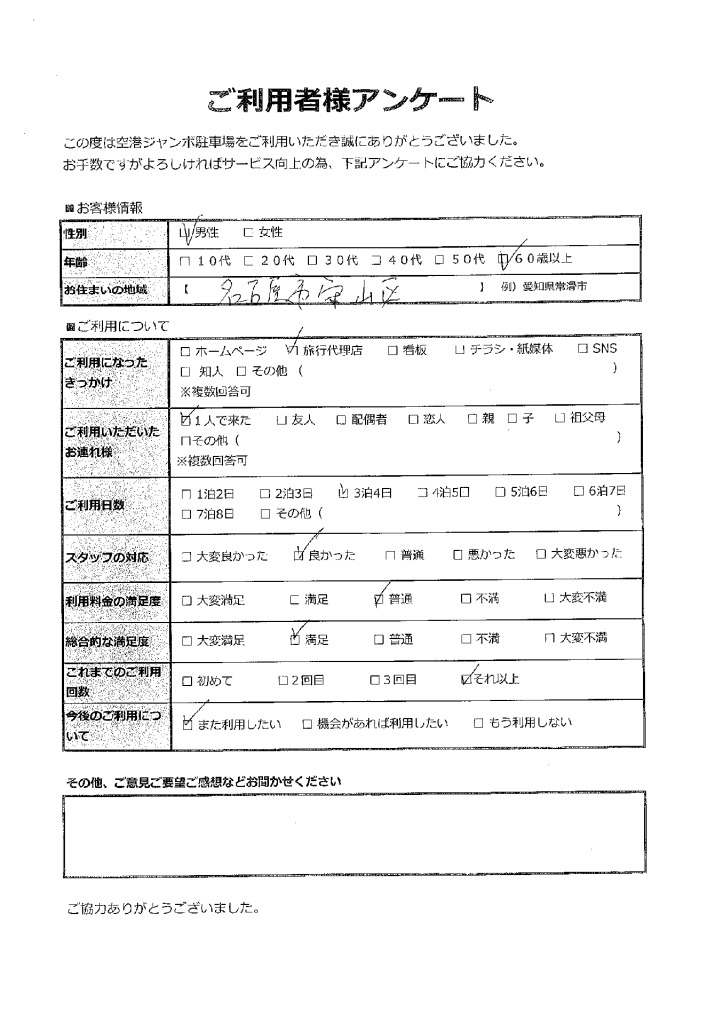 ご利用者様アンケート
この度は空港ジャンボ駐車場をご利用いただき誠にありがとうございました。
お手数ですがよろしければサービス向上の為、下記アンケートにご協力ください。
■お客様情報
性別 ☑男性 □ 女性
年齢 □ 10代 □ 20代 □ 30代 □ 40代 □ 50代 ☑60歳以上
お住まいの地域 【 名古屋市守山区 】 例）愛知県常滑市
■ご利用について
ご利用になった
きっかけ
□ ホームページ ☑旅行代理店 □ 看板 □ チラシ・紙媒体 □ SNS
□ 知人 □ その他（ ）
※複数回答可
ご利用いただいた
お連れ様
☑1人で来た □ 友人 □ 配偶者 □ 恋人 □ 親 □ 子 □ 祖父母
□その他（ ）
※複数回答可
ご利用日数
□ 1泊2日 □ 2泊3日 ☑ 3泊4日 □ 4泊5日 □ 5泊6日 □ 6泊7日
□ 7泊8日 □ その他（ ）
スタッフの対応 □ 大変良かった ☑良かった □ 普通 □ 悪かった □ 大変悪かった
利用料金の満足度 □ 大変満足 □ 満足 ☑ 普通 □ 不満 □ 大変不満
総合的な満足度 □ 大変満足 ☑ 満足 □ 普通 □ 不満 □ 大変不満
これまでのご利用
回数
□ 初めて □2回目 □3回目 ☑それ以上
今後のご利用につ
いて
☑ また利用したい □ 機会があれば利用したい □ もう利用しない
その他、ご意見ご要望ご感想などお聞かせください
ご協力ありがとうございました。